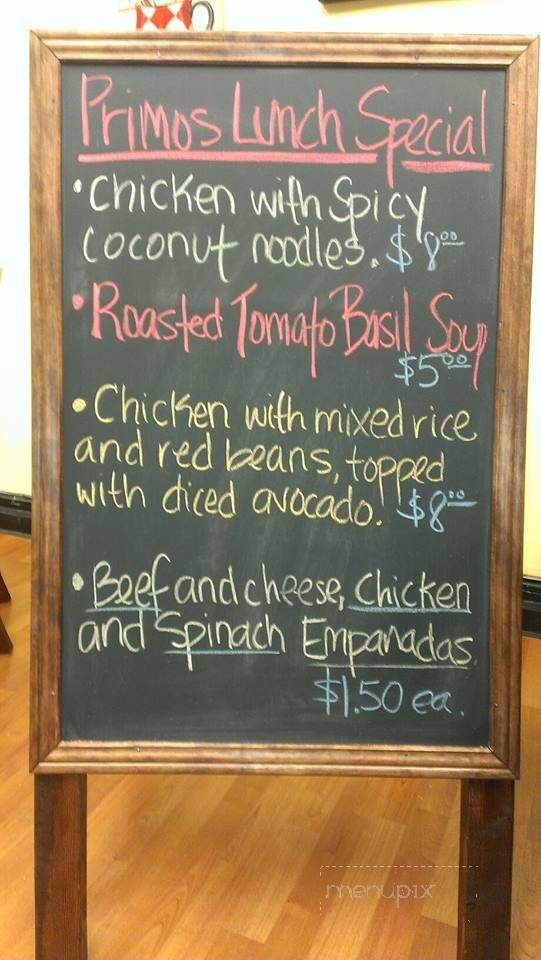 Primos Lunch Special
• Chicken with Spicy
coconut noodles. $8.00
• Roasted Tomato Basil Soup
$5.00
• Chicken with mixed rice
and red beans, topped
with diced avocado. $8.00
• Beef and cheese, Chicken
and Spinach Empanadas.
$1.50 ea.
menupix